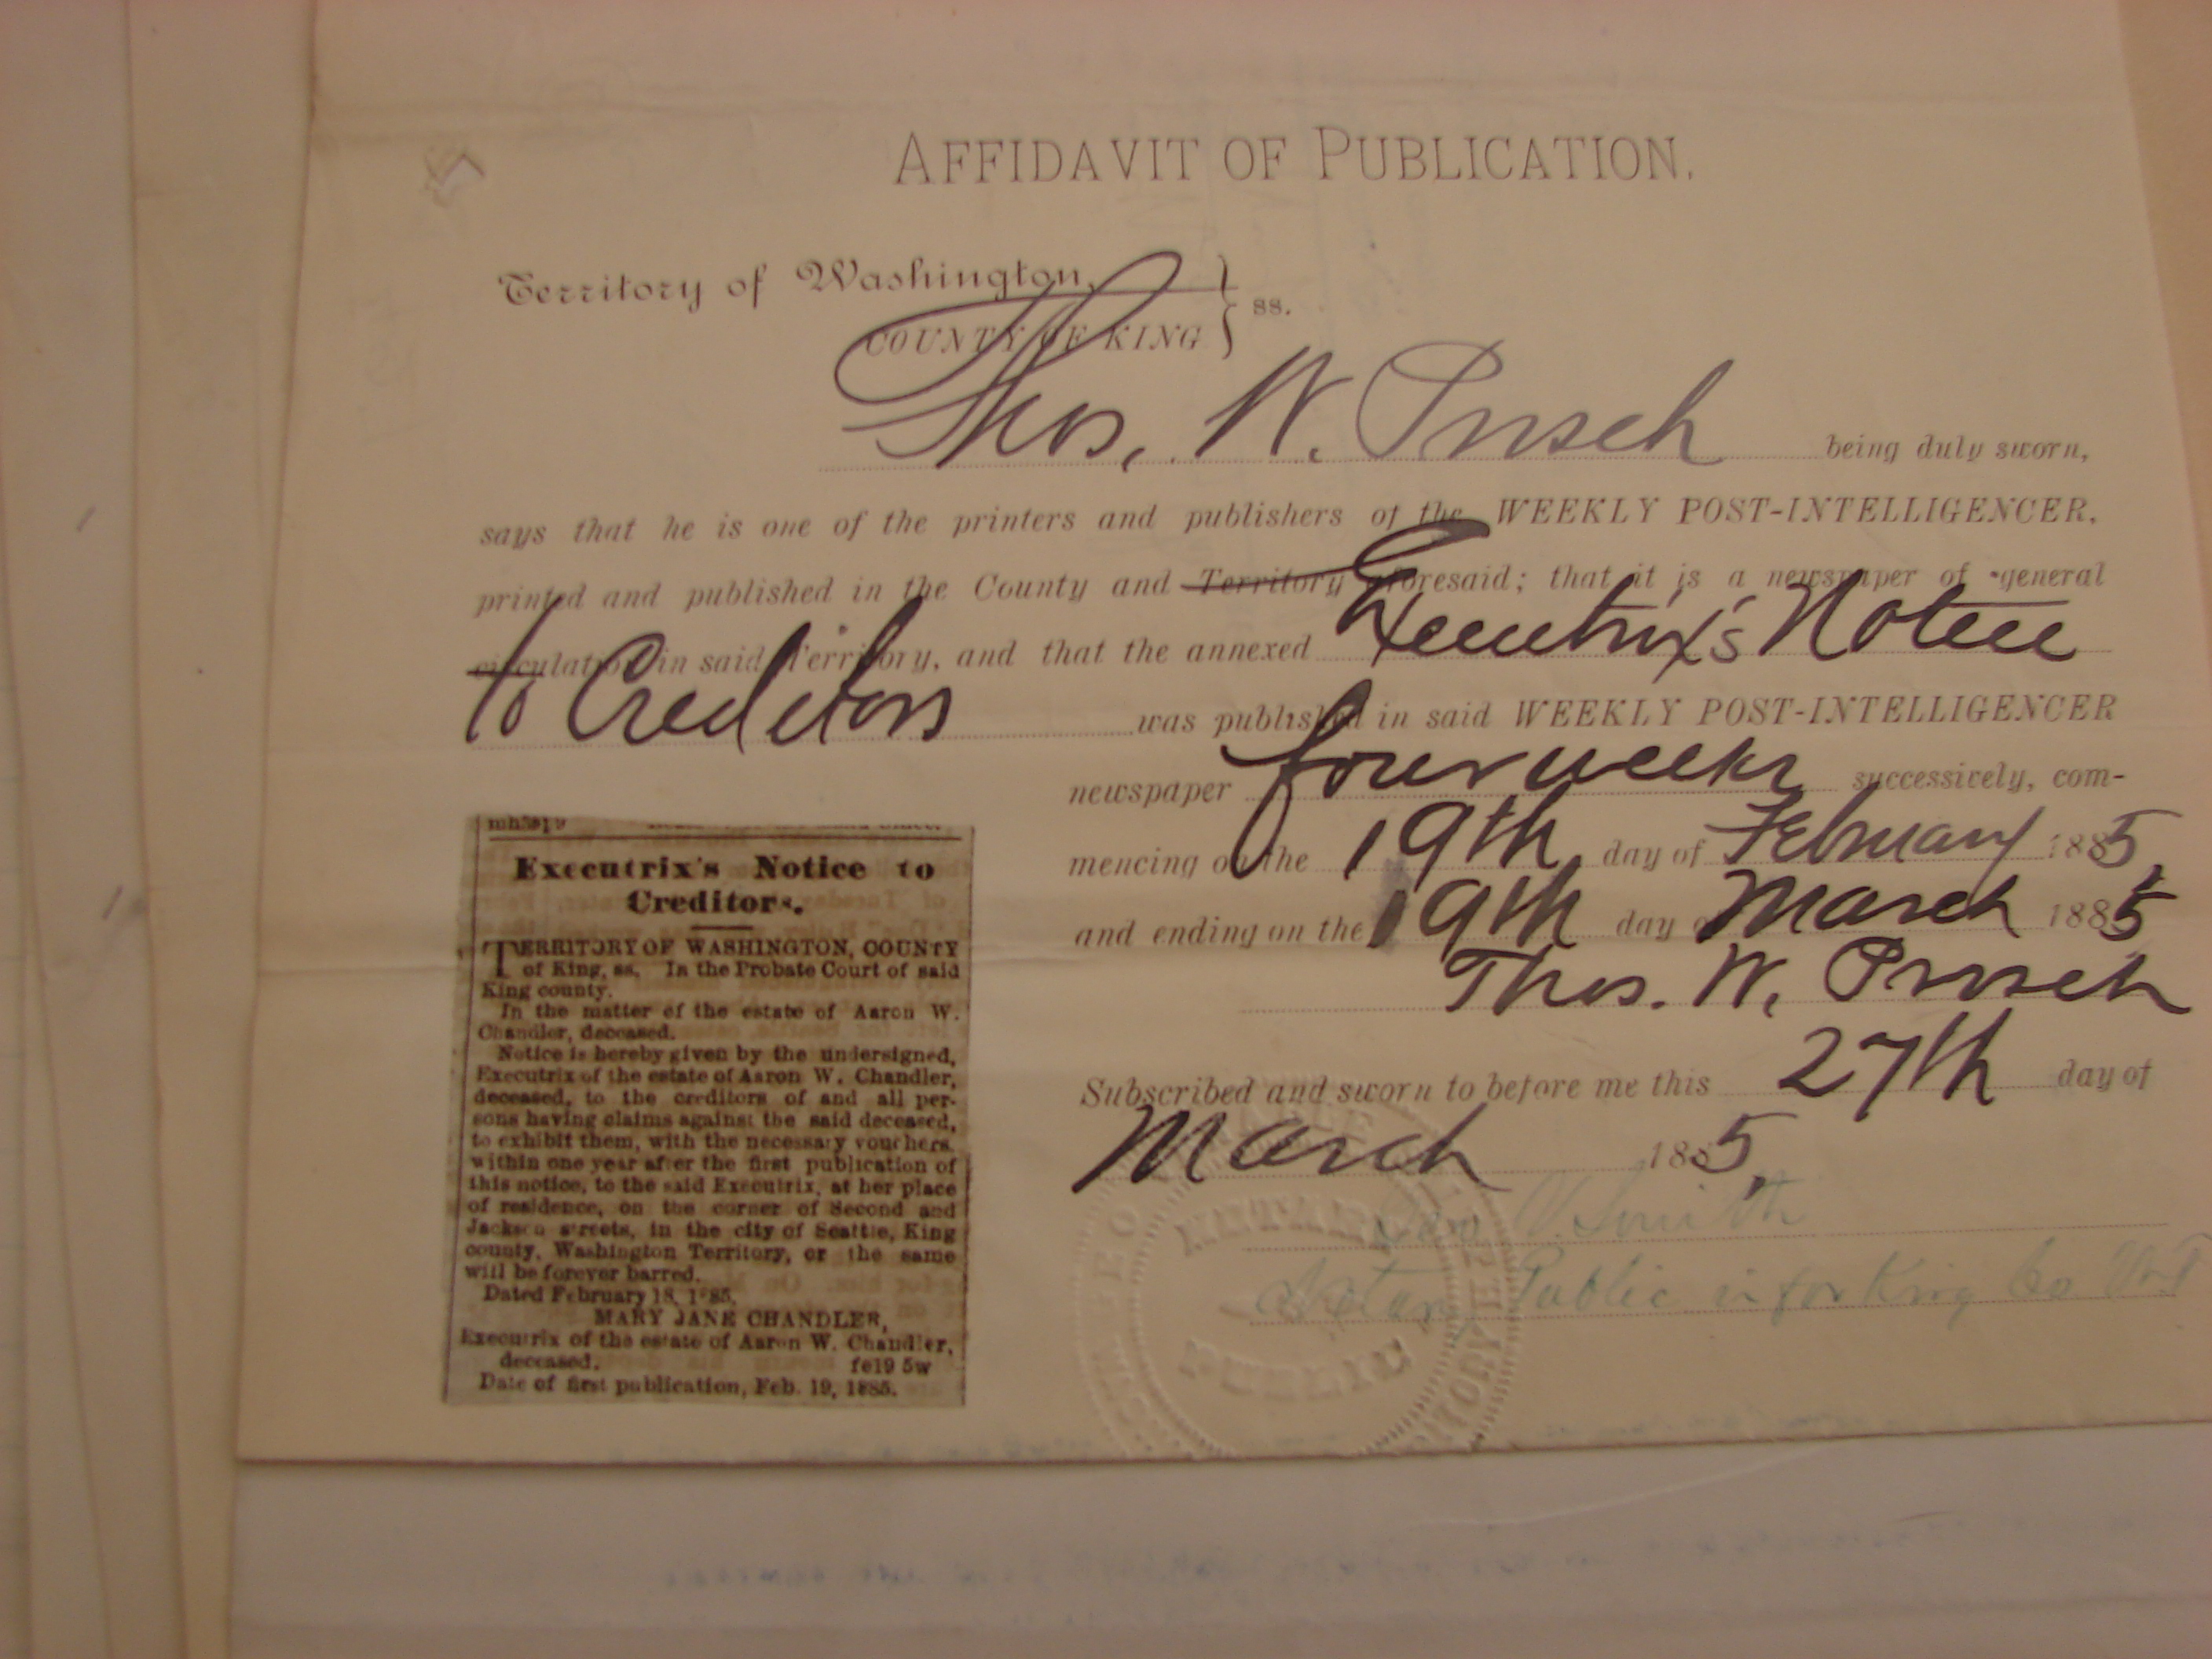 AFFIDAVIT OF PUBLICATION.
Territory of Washington,
COUNTY OF KING } ss.
Thos. W. Prosch being duly sworn,
says that he is one of the printers and publishers of the WEEKLY POST-INTELLIGENCER,
printed and published in the County and Territory aforesaid; that it is a newspaper of general
circulation in said Territory, and that the annexed Executrix's Notice
to Creditors was published in said WEEKLY POST-INTELLIGENCER
newspaper four weeks successively, com-
mencing on the 19th day of February 1885,
and ending on the 19th day of March 1885
Thos. W. Prosch
Subscribed and sworn to before me this 27th day of
March 1885,
V. Smith
Notary Public in for King Co W.T
NOTARY
PUBLIC
Executrix's Notice to
Creditors.
TERRITORY OF WASHINGTON, COUNTY
of King, ss. In the Probate Court of said
King county.
In the matter of the estate of Aaron W.
Chandler, deceased.
Notice is hereby given by the undersigned,
Executrix of the estate of Aaron W. Chandler,
deceased, to the creditors of and all per-
sons having claims against the said deceased,
to exhibit them, with the necessary vouchers,
within one year after the first publication of
this notice, to the said Executrix, at her place
of residence, on the corner of Second and
Jackson streets, in the city of Seattle, King
county, Washington Territory, or the same
will be forever barred.
Dated February 18, 1885.
MARY JANE CHANDLER,
Executrix of the estate of Aaron W. Chandler,
deceased. fe19 5w
Date of first publication, Feb. 19, 1885.